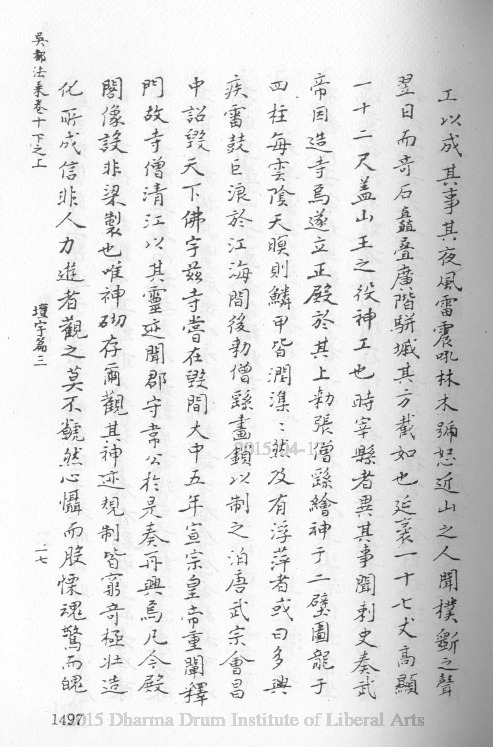 工以成其事其夜風雷震吼林木號怒近山之人聞撲斵之聲
翌日而奇石矗叠廣階駢墄其方截如也延袤一十七丈高顯
一十二尺盖山王之役神工也時宰縣者異其事聞刺史奏武
帝因造寺焉遂立正殿於其上勅張僧繇繪神于二壁圖龍于
四柱每雲陰天暝則鱗甲皆潤溼溼然及有浮萍者或曰多興
疾雷鼓巨浪於江海間後勅僧繇畫鎖以制之洎唐武宗會昌
中詔毀天下佛宇兹寺嘗在毀間大中五年宣宗皇帝重闡釋
門故寺僧清江以其靈迹聞郡守韋公於是奏再興焉凡今殿
閣像設非梁製也唯神砌存爾觀其神迹規制皆窮奇極壮造
化所成信非人力進者觀之莫不兢然心懾而股慄魂驚而魄
吳都法乘卷十下之上
壇宇篇三
一七
1497
2015-04-1
2015 Dharma Drum Institute of Liberal Arts